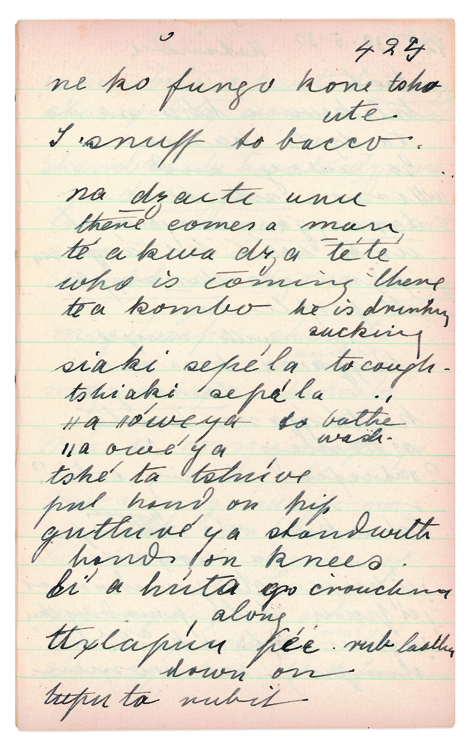 424
ne ko fungo kone tsho
ute
I snuff tobacco.
na dzacte unu
there comes a man,
té a kwa dza té té
who is coming there
te a kombo he is drinking
sucking
siaki sepéla to cough.
tshiaki sepéla
ǁa ǁówe ya to bathe
ǁa owé ya wash.
tshé ta
put hand on hip
gutluvé ya stand with
hands on knees.
a húta go crouching
along
pée. rub
down on
to rub it